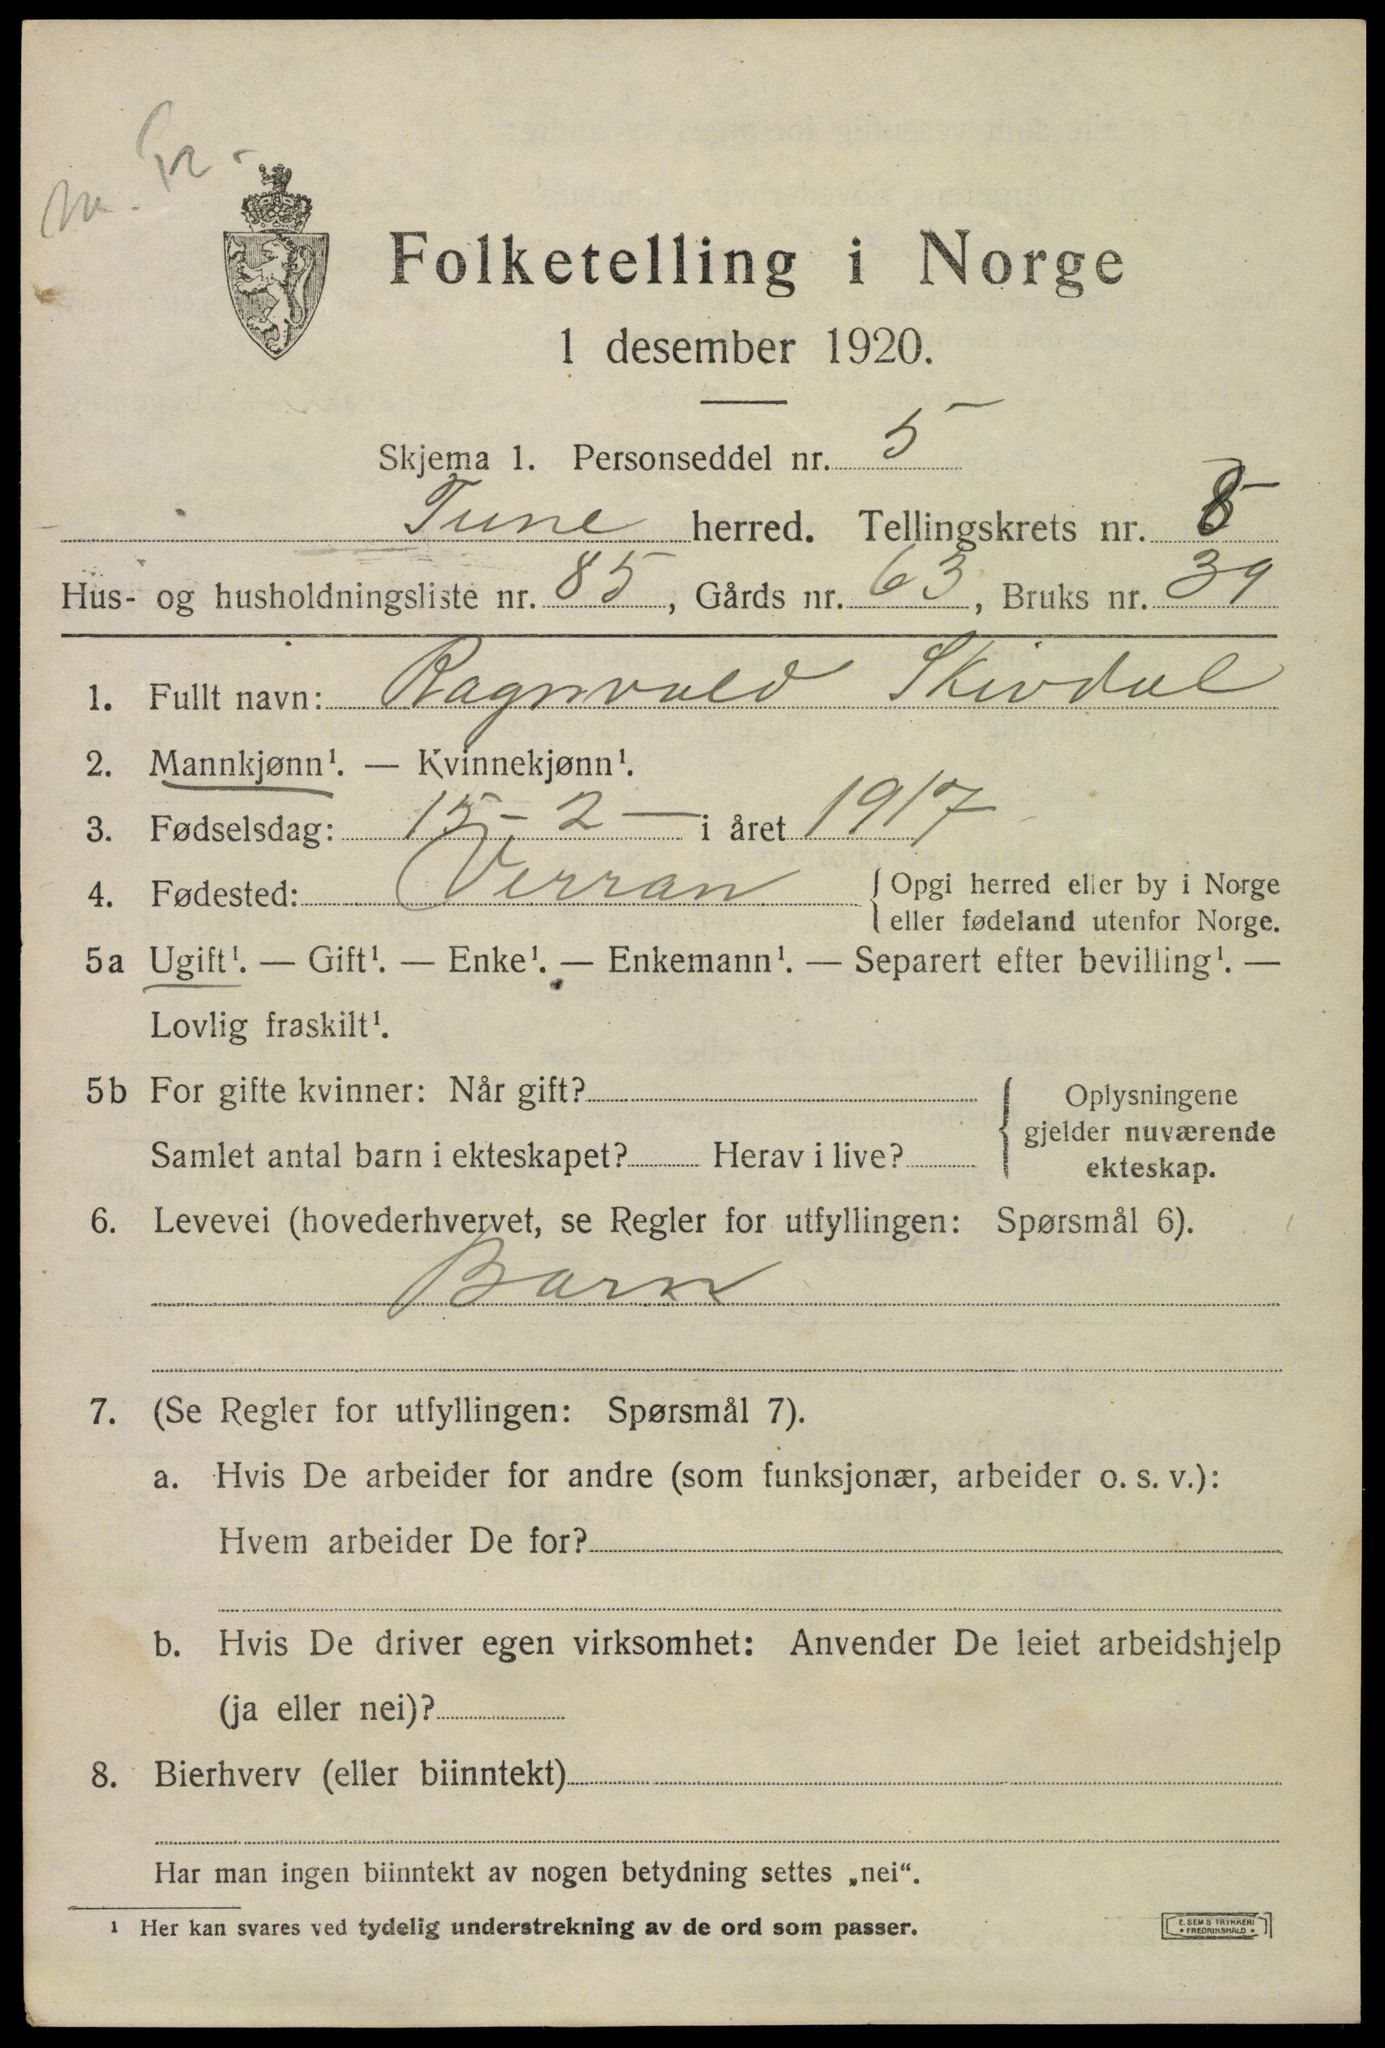 Folketelling i Norge
1 desember 1920.
Skjema 1. Personseddel nr. 5
Tune herred. Tellingskrets nr.
Hus- og husholdningsliste nr. 85, Gårds nr. 63, Bruks nr. 39
1. Fullt navn: Ragnvald Skivdal
2. Mannkjønn¹. — Kvinnekjønn¹.
3. Fødselsdag: 15 - 2 — i året 1917
4. Fødested: Verran { Opgi herred eller by i Norge
eller fødeland utenfor Norge.
5a Ugift¹. — Gift¹. — Enke¹. — Enkemann¹. — Separert efter bevilling¹. —
Lovlig fraskilt¹.
5b For gifte kvinner: Når gift? { Oplysningene
gjelder nuværende
Samlet antal barn i ekteskapet? Herav i live? ekteskap.
6. Levevei (hovederhvervet, se Regler for utfyllingen: Spørsmål 6).
Barn
7. (Se Regler for utfyllingen: Spørsmål 7).
a. Hvis De arbeider for andre (som funksjonær, arbeider o. s. v.):
Hvem arbeider De for?
b. Hvis De driver egen virksomhet: Anvender De leiet arbeidshjelp
(ja eller nei)?
8. Bierhverv (eller biinntekt)
Har man ingen biinntekt av nogen betydning settes „nei“.
¹ Her kan svares ved tydelig understrekning av de ord som passer.
E. SEMS TRYKKERI
• FREDRIKSHALD •